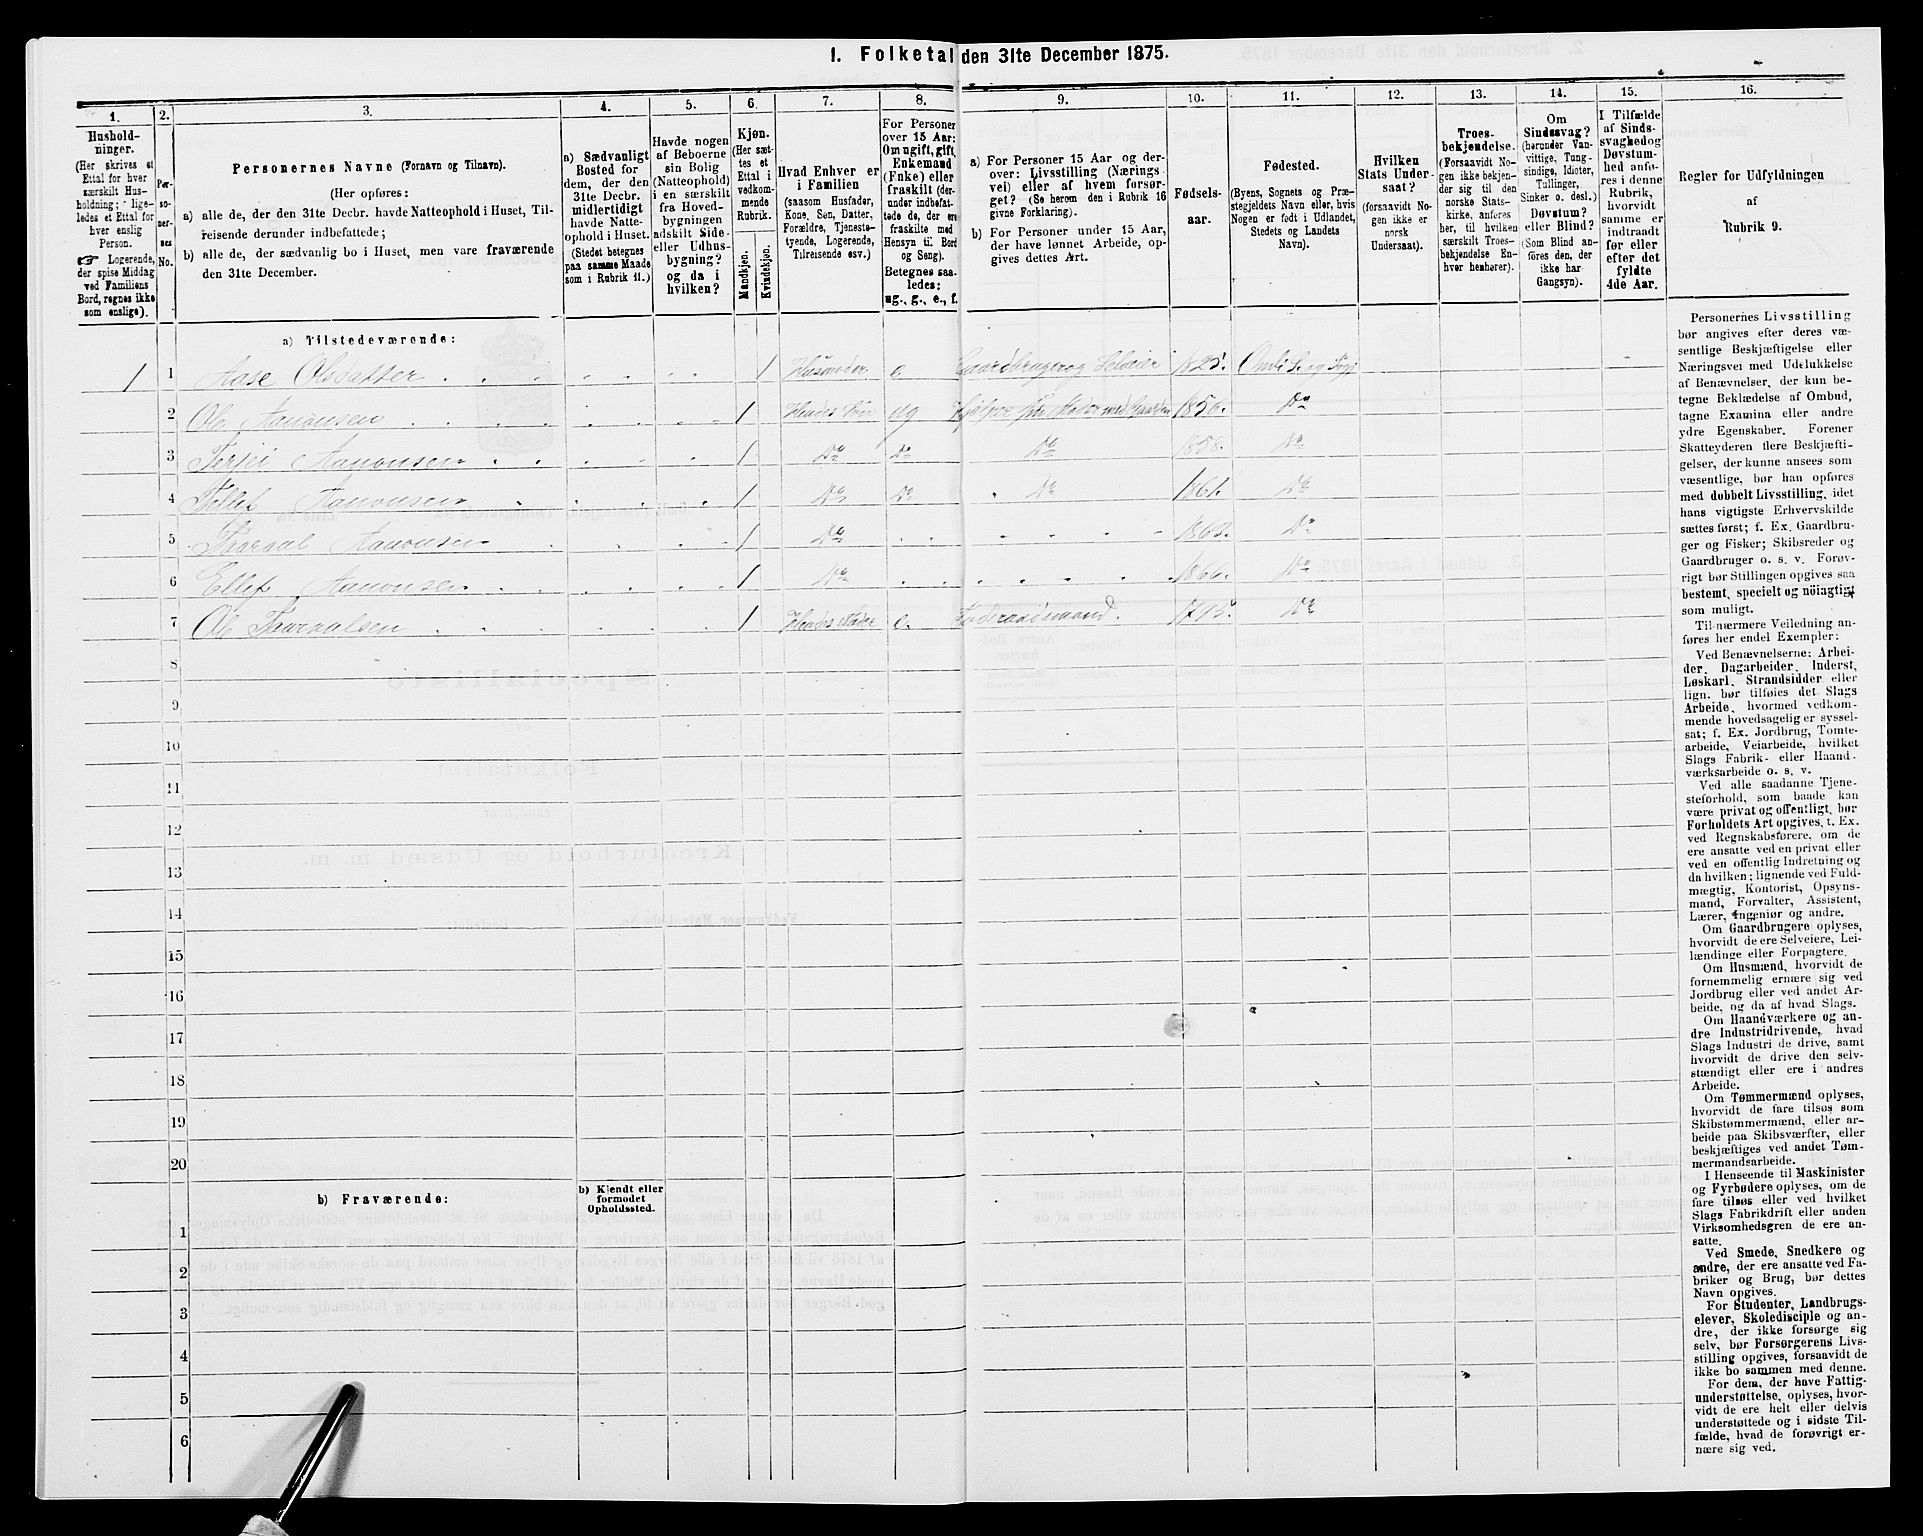 1. Folketal den 31te December 1875.
1.
Hushold-
ninger.
(Her skrives et
Ettal for hver
særskilt Hus-
holdning; lige-
ledes et Ettal for
hver enslig
Person.
☞ Logerende,
der spise Middag
ved Familiens
Bord, regnes ikke
som enslige).
2.
Per-
so-
ner-
nes
No.
3.
Personernes Navne (Fornavn og Tilnavn).
(Her opføres:
a) alle de, der den 31te Decbr. havde Natteophold i Huset, Til-
reisende derunder indbefattede;
b) alle de, der sædvanlig bo i Huset, men vare fraværende
den 31te December.
4.
a) Sædvanligt
Bosted for
dem, der den
31te Decbr.
midlertidigt
havde Natte-
ophold i Huset.
(Stedet betegnes
paa samme Maade
som i Rubrik 11.)
5.
Havde nogen
af Beboerne
sin Bolig
(Natteophold)
i en særskilt
fra Hoved-
bygningen
adskilt Side-
eller Udhus-
bygning?
og da i
hvilken?
6.
Kjøn.
(Her sæt-
tes et
Ettal i
vedkom-
mende
Rubrik.
Mandkjøn.
Kvindekjøn.
7.
Hvad Enhver er
i Familien
(saasom Husfader,
Kone, Søn, Datter,
Forældre, Tjeneste-
tyende, Logerende,
Tilreisende osv.)
8.
For Personer
over 15 Aar:
Om ugift, gift,
Enkemand
(Enke) eller
fraskilt (der-
under indbefat-
tede de, der ere
fraskilte med
Hensyn til Bord
og Seng).
Betegnes saa-
ledes:
ug., g., e., f.
9.
a) For Personer 15 Aar og der-
over: Livsstilling (Nærings-
vei) eller af hvem forsør-
get? (Se herom den i Rubrik 16
givne Forklaring).
b) For Personer under 15 Aar,
der have lønnet Arbeide, op-
gives dettes Art.
10.
Fødsels-
aar.
11.
Fødested.
(Byens, Sognets og Præ-
stegjeldets Navn eller, hvis
Nogen er født i Udlandet,
Stedets og Landets
Navn).
12.
Hvilken
Stats Under-
saat?
(forsaavidt No-
gen ikke er
norsk
Undersaat).
13.
Troes-
bekjendelse.
(Forsaavidt No-
gen ikke bekjen-
der sig til den
norske Stats-
kirke, anføres
her, til hvilken
særskilt Troes-
bekjendelse En-
hver henhører).
14.
Om
Sindssvag?
(herunder Van-
vittige, Tung-
sindige, Idioter,
Tullinger,
Sinker o. desl.)
Døvstum?
eller Blind?
(Som Blind an-
føres den, der
ikke har
Gangsyn).
15.
I Tilfælde
af Sinds-
svaghed og
Døvstum-
hed anfø-
res i denne
Rubrik,
hvorvidt
samme er
indtraadt
før eller
efter det
fyldte
4de Aar.
16.
Regler for Udfyldningen
af
Rubrik 9.
a) Tilstedeværende:
1 1 Aase Olsdatter 1 Husmoder e. Gaardbruger og Selveier 1825. Omli S. og Prgj
2 Ole Aanonsen 1 Hendes Søn ug Hjelper sin Moder med Gaarden 1856. Do
3 Terjei Aanonsen 1 Do Do Do 1858. Do
4 Tellef Aanonsen 1 Do Do Do 1861. Do
5 Thoraul Aanonsen 1 Do Do
6 Ellef Aanonsen 1 Do 1866. Do
7 Ole Thoraulsen 1 Hendes Fader e. Føderaadsmand. 1795. Do
8
9
10
11
12
13
14
15
16
17
18
19
20
b) Fraværende:
b) Kjendt eller
formodet
Opholdssted.
1
2
3
4
5
6
Personernes Livsstilling
bør angives efter deres væ-
sentlige Beskjæftigelse eller
Næringsvei med Udelukkelse
af Benævnelser, der kun be-
tegne Beklædelse af Ombud,
tagne Examina eller andre
ydre Egenskaber. Forener
Skatteyderen flere Beskjæfti-
gelser, der kunne ansees som
væsentlige, bør han opføres
med dobbelt Livsstilling, idet
hans vigtigste Erhvervskilde
sættes først; f. Ex. Gaardbru-
ger og Fisker; Skibsreder og
Gaardbruger o. s. v. Forøv-
rigt bør Stillingen opgives saa
bestemt, specielt og nøiagtigt
som muligt.
Til nærmere Veiledning an-
føres her endel Exempler:
Ved Benævnelserne: Arbei-
der, Dagarbeider, Inderst,
Løskarl, Strandsidder eller
lign. bør tilføies det Slags
Arbeide, hvormed vedkom-
mende hovedsagelig er syssel-
sat; f. Ex. Jordbrug, Tomte-
arbeide, Veiarbeide, hvilket
Slags Fabrik- eller Haand-
værksarbeide o. s. v.
Ved alle saadanne Tjene-
steforhold, som baade kan
være privat og offentligt, bør
Forholdets Art opgives, t. Ex.
ved Regnskabsførere, om de
ere ansatte ved en privat eller
ved en offentlig Indretning og
da hvilken; lignende ved Fuld-
mægtig, Kontorist, Opsyns-
mand, Forvalter, Assistent,
Lærer, Ingeniør og andre.
Om Gaardbrugere oplyses,
hvorvidt de ere Selveiere, Lei-
lændinge eller Forpagtere.
Om Husmænd, hvorvidt de
fornemmelig ernære sig ved
Jordbrug eller ved andet Ar-
beide, og da af hvad Slags.
Om Haandværkere og an-
dre Industridrivende, hvad
Slags Industri de drive, samt
hvorvidt de drive den selv-
stændigt eller ere i andres
Arbeide.
Om Tømmermænd oplyses,
hvorvidt de fare tilsøs som
Skibstømmermænd, eller ar-
beide paa Skibsværfter, eller
beskjæftiges ved andet Tøm-
mermandsarbeide.
I Henseende til Maskinister
og Fyrbødere oplyses, om de
fare tilsøs eller ved hvilket
Slags Fabrikdrift eller anden
Virksomhedsgren de ere an-
satte.
Ved Smede, Snedkere og
andre, der ere ansatte ved Fa-
briker og Brug, bør dettes
Navn opgives.
For Studenter, Landbrugs-
elever, Skoledisciple og an-
dre, der ikke forsørge sig
selv, bør Forsørgerens Livs-
stilling opgives, forsaavidt de
ikke bo sammen med denne.
For dem, der have Fattig-
understøttelse, oplyses, hvor-
vidt de ere helt eller delvis
understøttede og i sidste Til-
fælde, hvad de forøvrigt er-
nære sig ved.